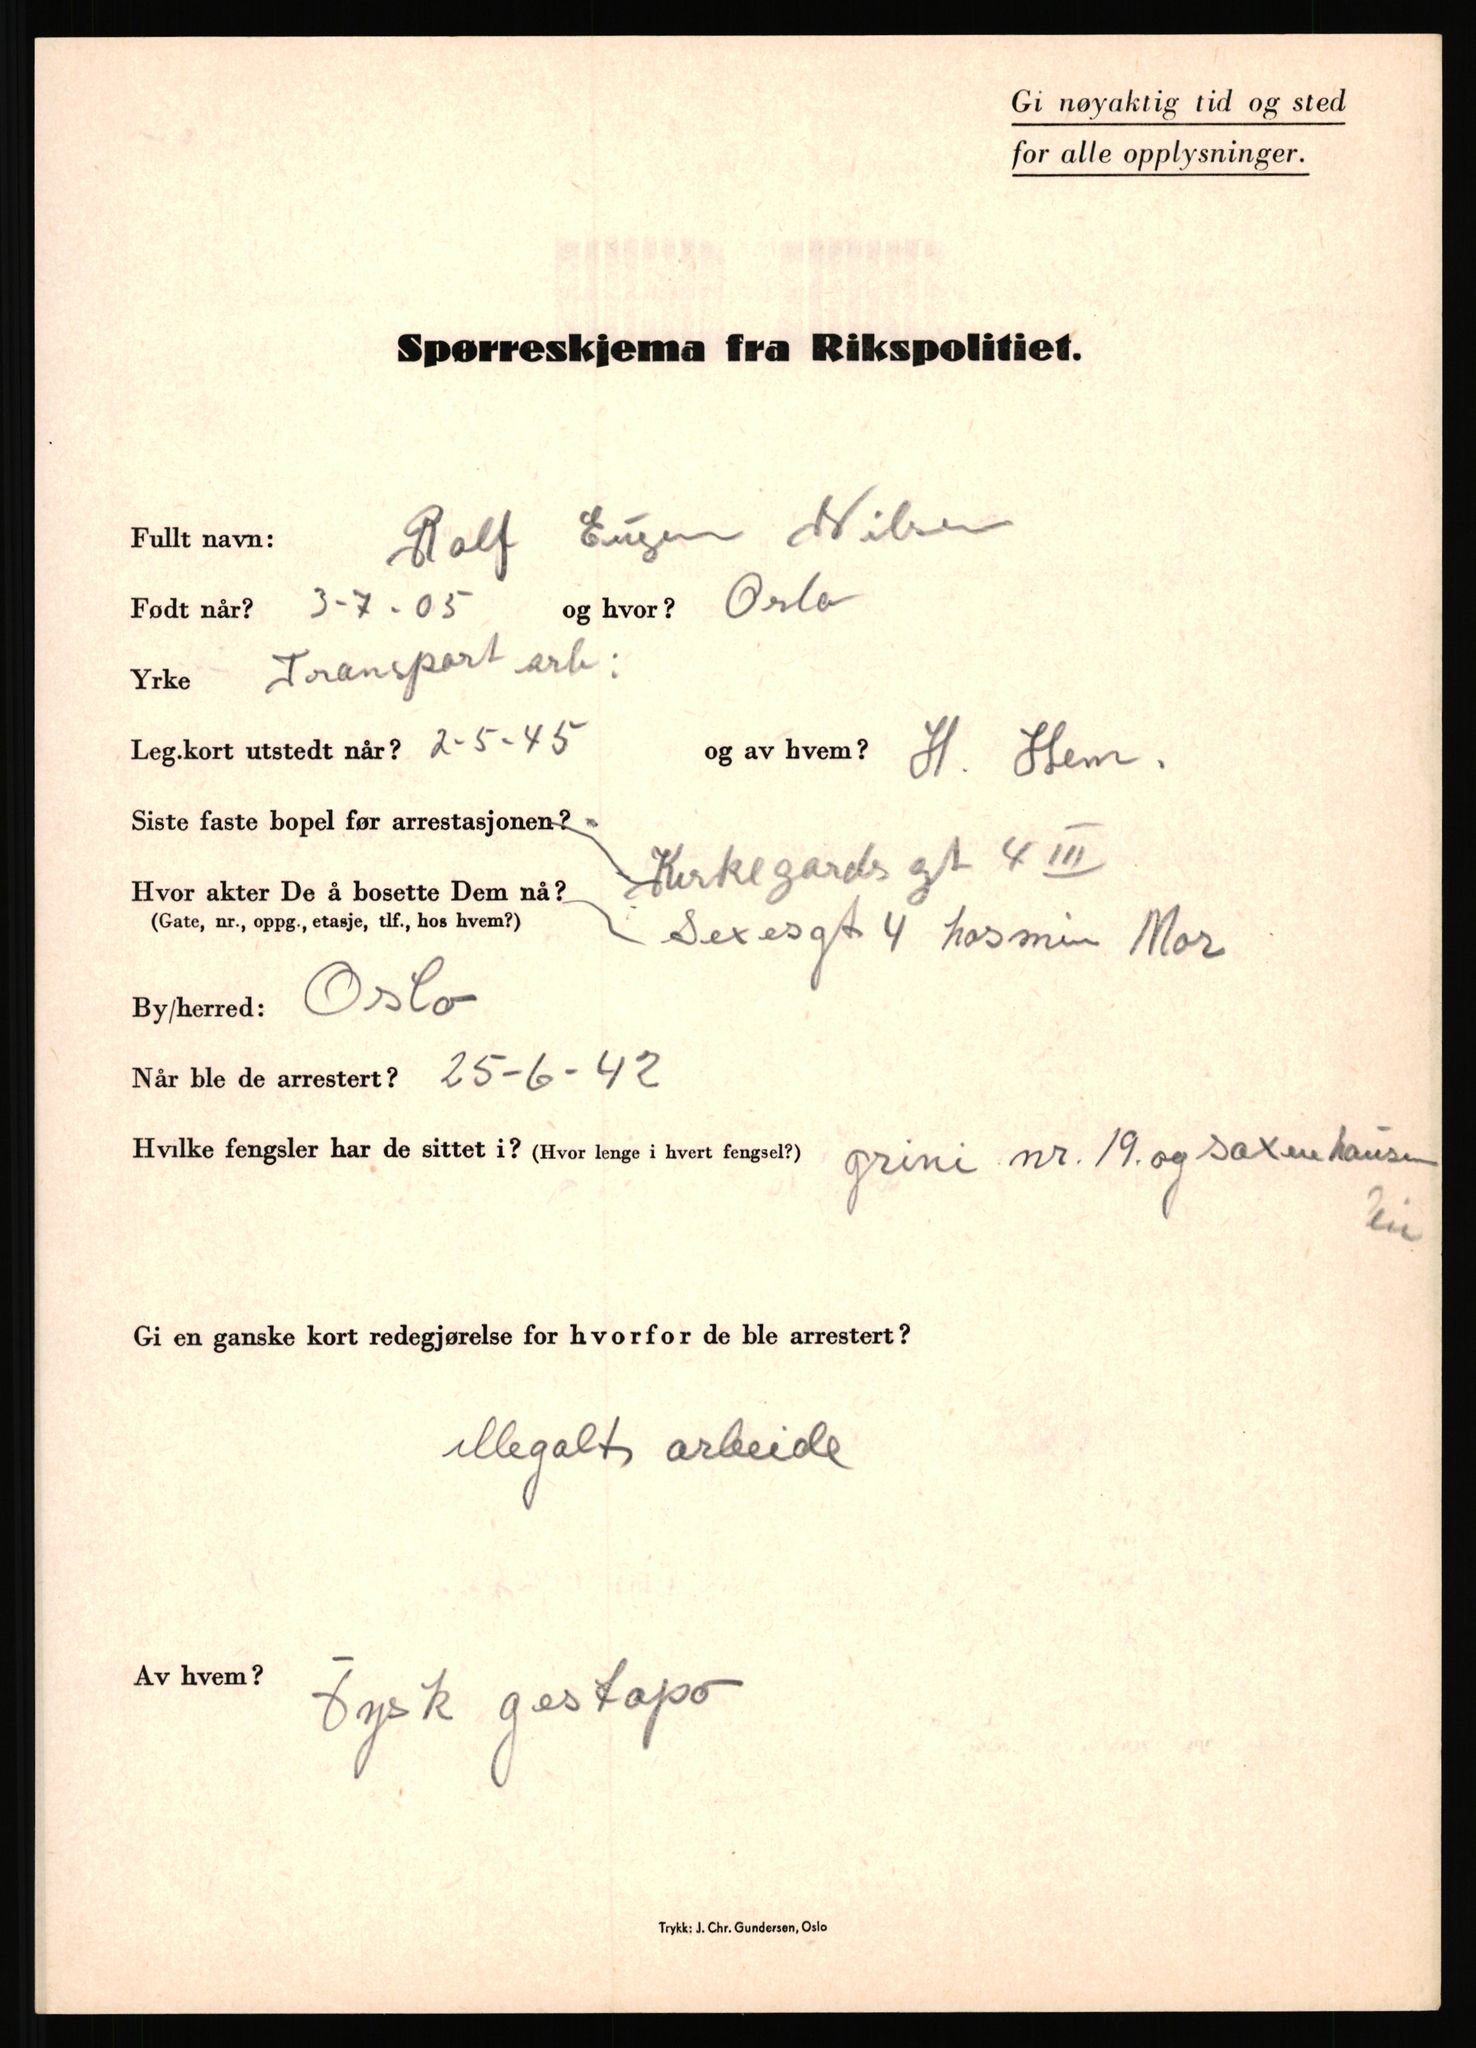 Gi nøyaktig tid og sted
for alle opplysninger.
Spørreskjema fra Rikspolitiet.
Fullt navn: Rolf Eugen Nilsen
Født når? 3-7-05 og hvor? Oslo
Yrke Transport arb:
Leg.kort utstedt når? 2-5-45 og av hvem? H. Hem.
Siste faste bopel før arrestasjonen?
Kirkegards gt 4 III
Hvor akter De å bosette Dem nå?
(Gate, nr., oppg., etasje, tlf., hos hvem?)
Sexesgt 4 hos min Mor
By/herred: Oslo
Når ble de arrestert? 25-6-42
Hvilke fengsler har de sittet i? (Hvor lenge i hvert fengsel?) grini nr. 19. og saxenhausen
Gi en ganske kort redegjørelse for hvorfor de ble arrestert?
illegalt arbeide
Av hvem? Tysk gestapo
Trykk: J. Chr. Gundersen, Oslo